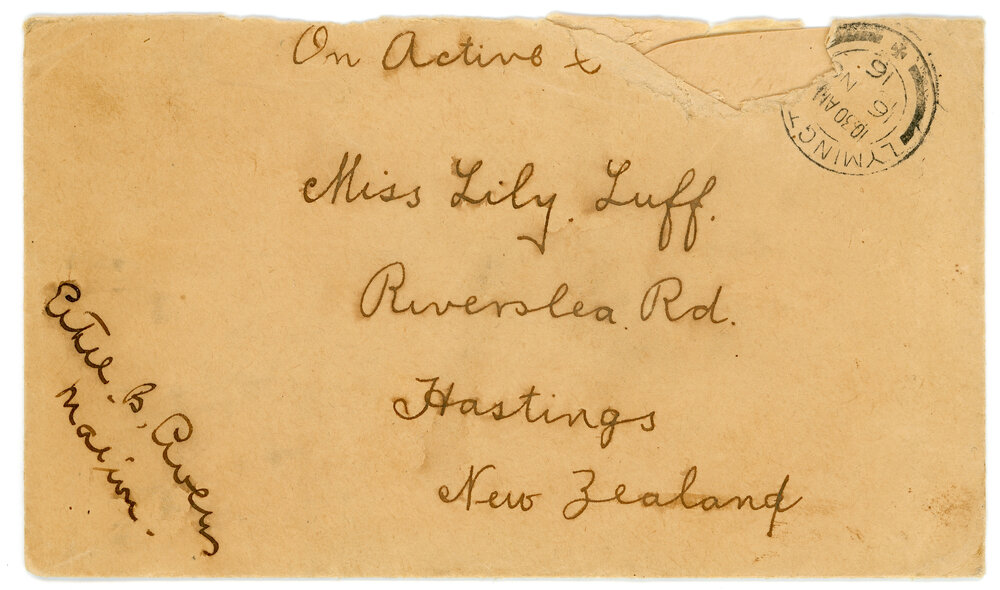 On Active
Miss Lily. Luff.
Riverslea. Rd.
Hastings
New Zealand
Ethel. B.
LYMINGT
10.30 AM
16 NO
16